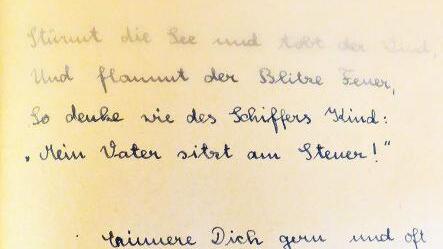 Stürmt die See und tobt der Wind,
Und flammt der Blitze Feuer,
So denke wie des Schiffers Kind:
„Mein Vater sitzt am Steuer!"
Erinnere Dich gern und oft